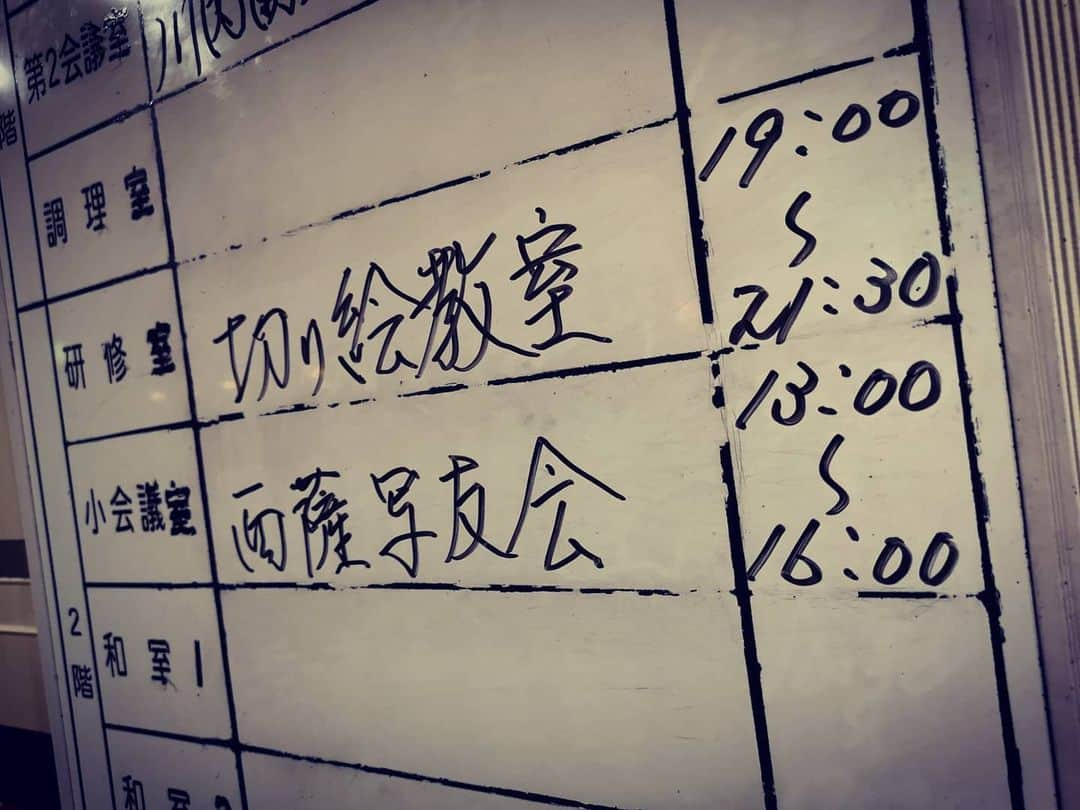 第2会議室
階
調理室
研修室 切り絵教室 19:00〜21:30
小会議室 西薩早友会 13:00〜16:00
2階
和室1
和室2